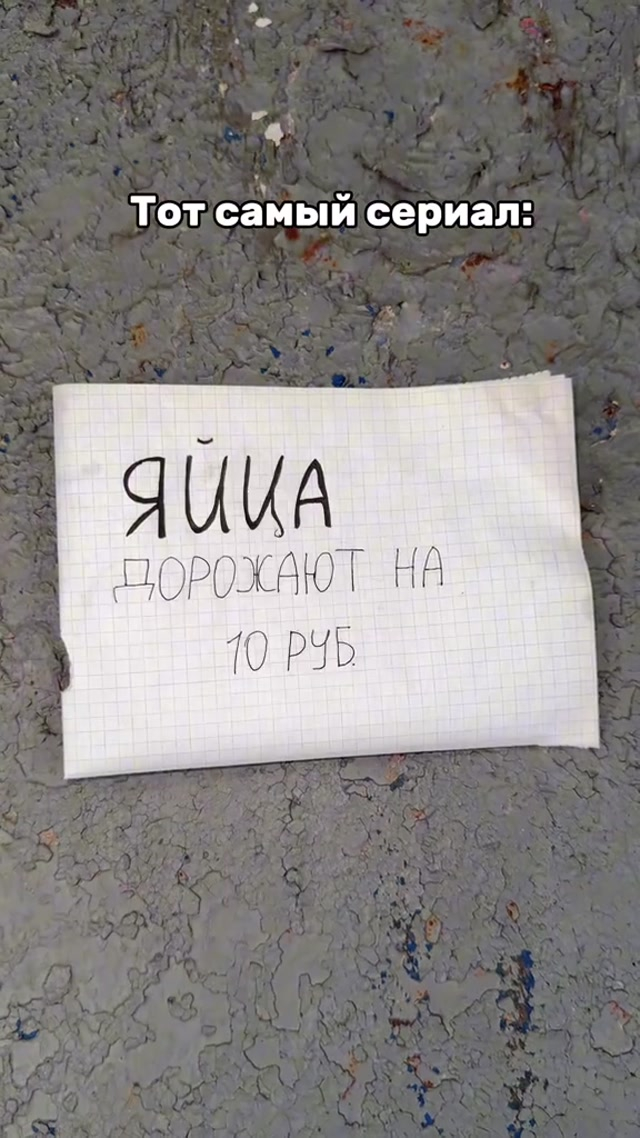 Тот самый сериал:
ЯЙЦА
ДОРОЖАЮТ НА
10 РУБ.